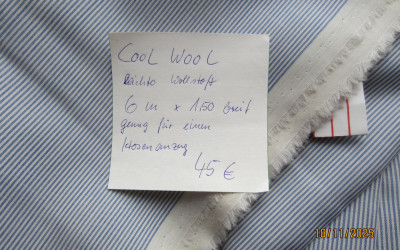 COOL WOOL
leichter Wollstoff
6 m x 1.50 breit
genug für einen
Hosenanzug
45 €
10/11/2025